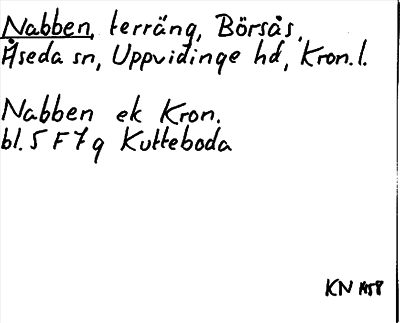 Nabben, terräng, Börsås,
Åseda sn, Uppvidinge hd, Kron.l.
Nabben ek Kron.
bl. 5 F 7 g Kutteboda
KN 1958